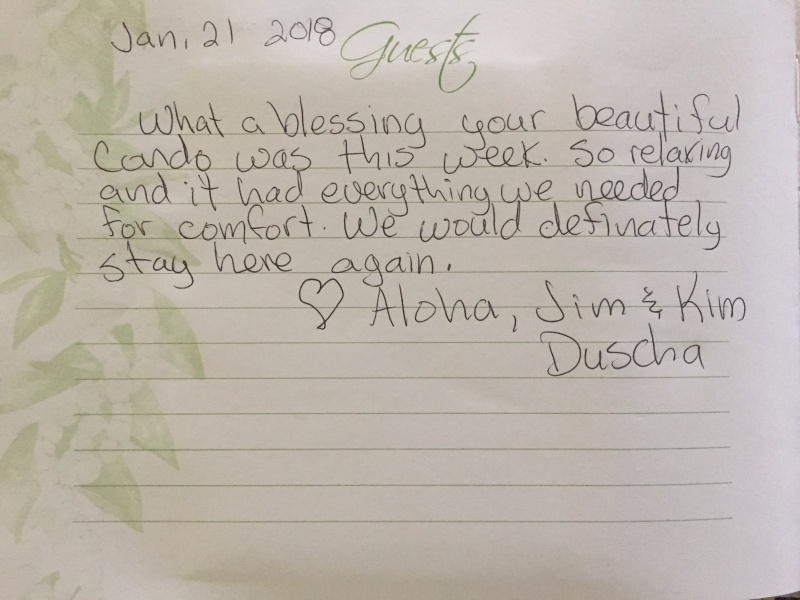 Jan, 21 2018 Guests
What a blessing your beautiful
Condo was this week. So relaxing
and it had everything we needed
for comfort. We would definately
stay here again.
♡ Aloha, Jim & Kim
Duscha